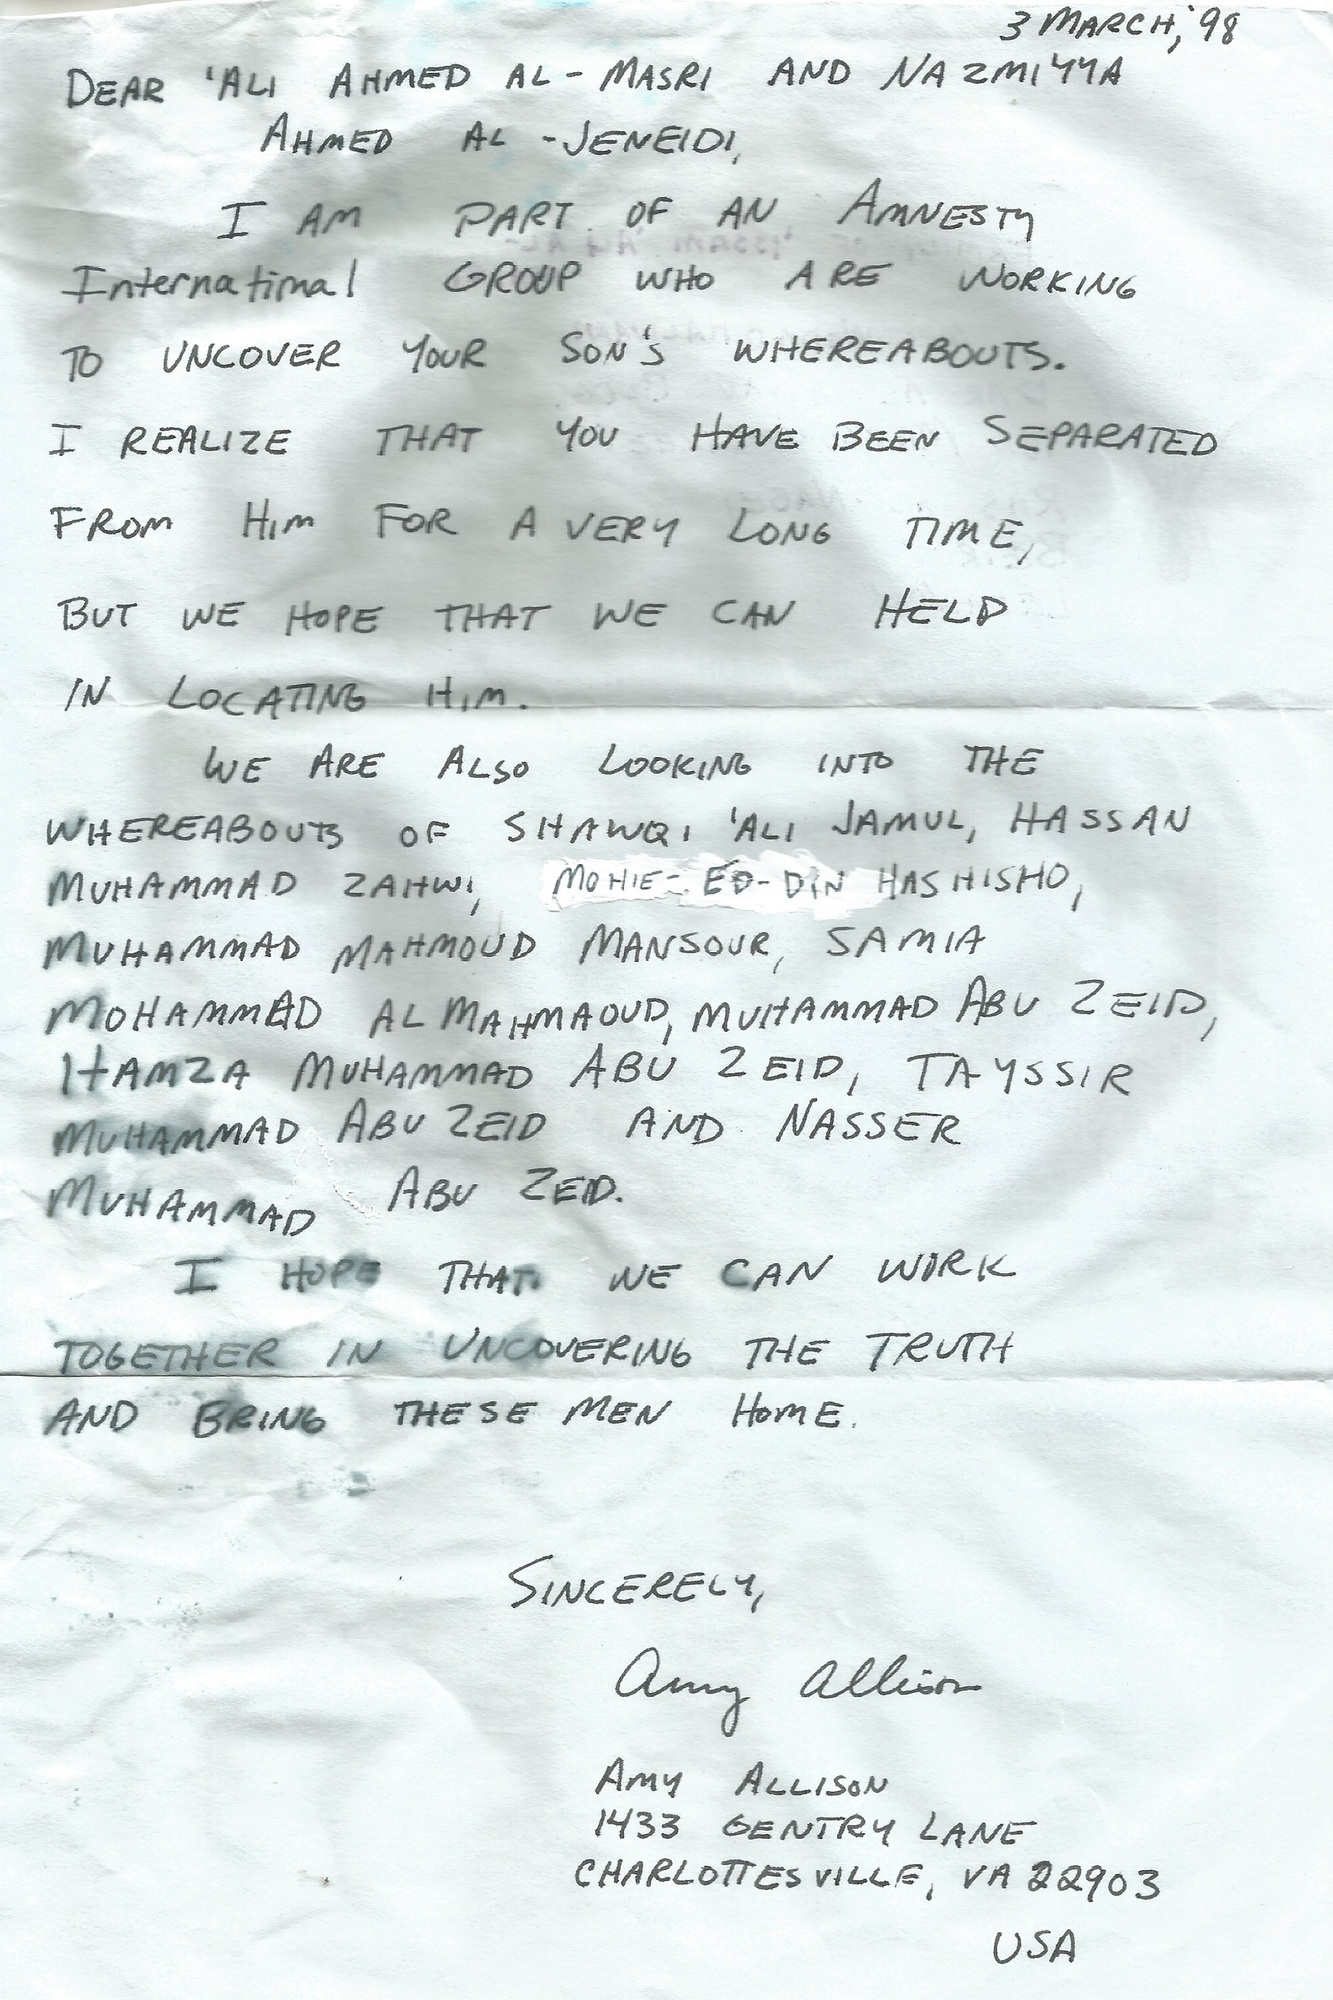 3 MARCH, '98
DEAR 'ALI AHMED AL-MASRI AND NAZMIYYA
AHMED AL-JENEIDI,
I AM PART OF AN AMNESTY
International GROUP WHO ARE WORKING
TO UNCOVER YOUR SON'S WHEREABOUTS.
I REALIZE THAT YOU HAVE BEEN SEPARATED
FROM HIM FOR A VERY LONG TIME,
BUT WE HOPE THAT WE CAN HELD
IN LOCATING HIM.
WE ARE ALSO LOOKING INTO THE
WHEREABOUTS OF SHAWQI 'ALI JAMUL, HASSAN
MUHAMMAD ZAHWI, MOHIE-ED-DIN HASHISHO,
MUHAMMAD MAHMOUD MANSOUR, SAMIA
MOHAMMAD AL MAHMAOUD, MUHAMMAD ABU ZEID,
HAMZA MUHAMMAD ABU ZEID, TAYSSIR
MUHAMMAD ABU ZEID AND NASSER
MUHAMMAD ABU ZEID.
I HOPE THAT WE CAN WORK
TOGETHER IN UNCOVERING THE TRUTH
AND BRING THESE MEN HOME.
SINCERELY,
Amy Allison
AMY ALLISON
1433 GENTRY LANE
CHARLOTTESVILLE, VA 22903
USA